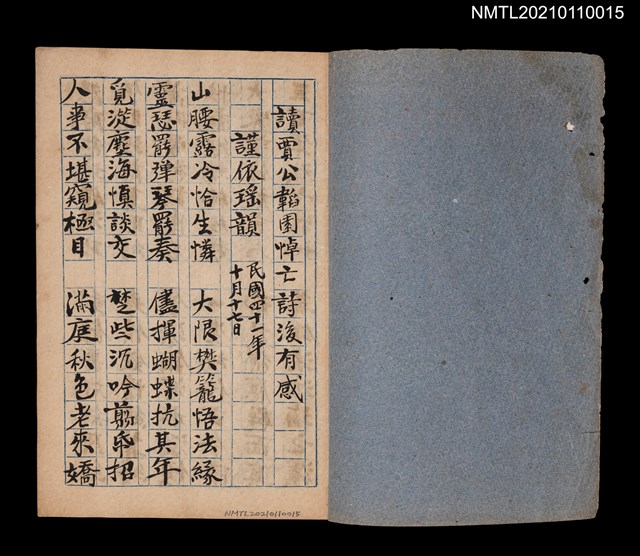 NMTL20210110015
讀賈公韜園悼亡詩後有感
謹依瑤韻 民國四十一年十月十七日
山腰露冷恰生憐 大限樊籠悟法緣
靈瑟罷弹琴罷奏 儘揮蝴蝶抗其年
覓從塵海慎談交 楚些沉吟翦帋招
人事不堪窺極目 滿庭秋色老來嬌
NMTL20210110015